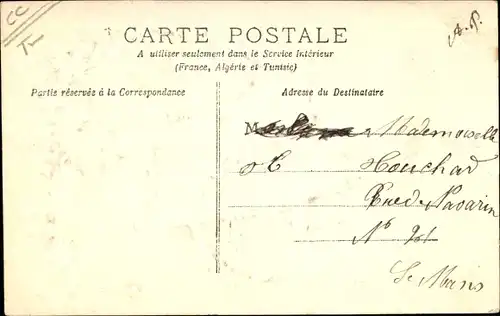 CARTE POSTALE
A utiliser seulement dans le Service Intérieur
(France, Algérie et Tunisie)
Partie réservée à la Correspondance
Adresse du Destinataire
M Mademoiselle
Houchard
Rue de Navarin
Le Mans